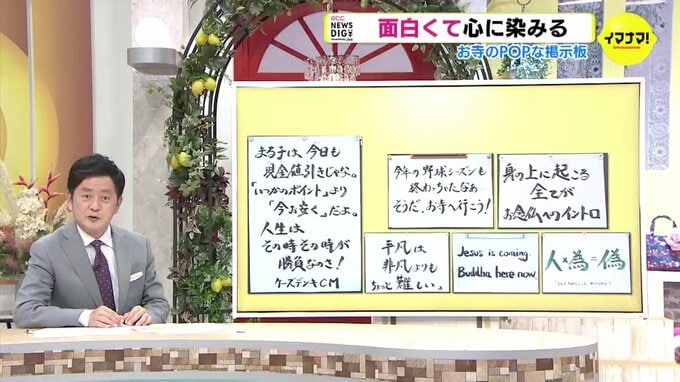 RCC
NEWS
DIG
面白くて心に染みる
お寺のPOPな掲示板
イマナマ!
まる子は、今日も
現金値引きじゃな。
「いつかのポイント」より
「今お安く」だよ。
人生は
その時その時が
勝負なのさ!
ケーズデンキCM
今年の野球シーズンも
終わっちゃたなあ
そうだ、お寺へ行こう!
身の上に起こる
全てが
お念仏へのイントロ
平凡は
非凡よりも
ちょっと難しい。
Jesus is coming.
Buddha here now.
人×為=偽